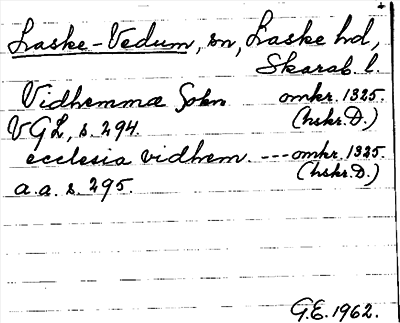 Laske-Vedum, sn, Laske hd,
Skarab. l.
Vidhemmæ Sokn omkr. 1325.
VGL, s. 294. (hskr. D.)
ecclesia vidhem --- omkr. 1325.
a.a. s. 295. (hskr. D.)
G.E. 1962.